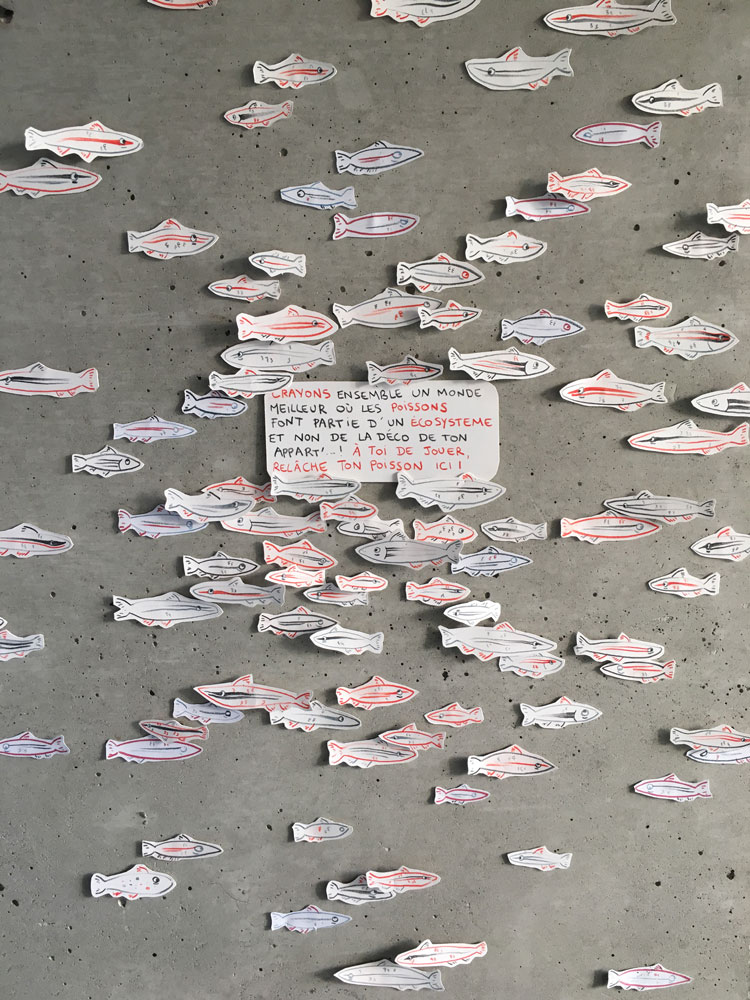 CRAYONS ENSEMBLE UN MONDE
MEILLEUR OÙ LES POISSONS
FONT PARTIE D'UN ÉCOSYSTEME
ET NON DE LA DÉCO DE TON
APPART'...! À TOI DE JOUER,
RELÂCHE TON POISSON ICI!